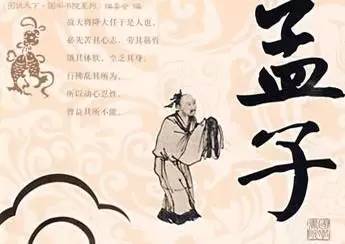 (图说天下·国学书院系列)编委会 编
故天将降大任于是人也,
必先苦其心志,劳其筋骨
饿其体肤,空乏其身;
行拂乱其所为,
所以动心忍性,
曾益其所不能。
孟子